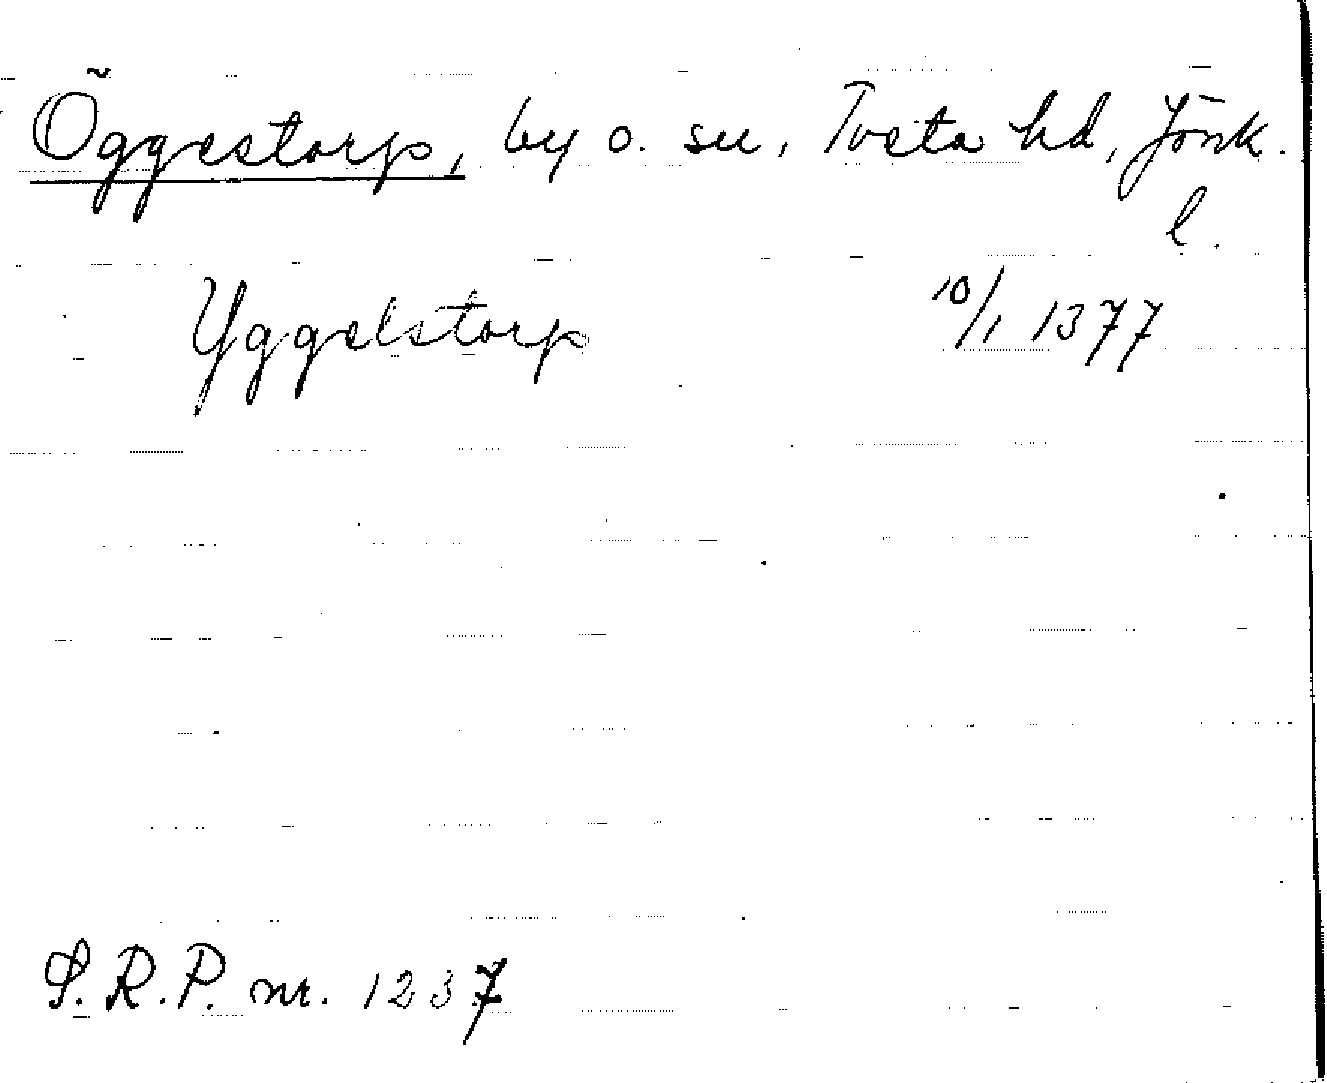 Öggestorp, by o. sn, Tveta hd, Jönk.
l.
Yggelstorp 10/1 1377
S.R.P. nr. 1237